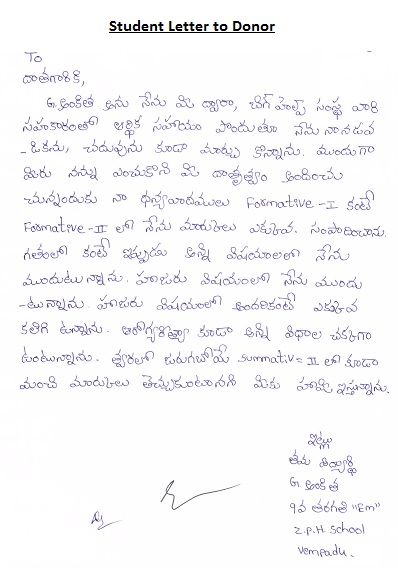 Student Letter to Donor
To
దాతగారికి,
G. అంకిత అను నేను మీ ద్వారా, బిగ్ హెల్ప్ సంస్థ వారి
సహకారంతో ఆర్థిక సహాయం పొందుతూ నేను నా నడవ
-డికను, చదువును కూడా మార్చు కొన్నాను. ముందుగా
మీరు నన్ను ఎంచుకొని మీ దాతృత్వం అందించు
చున్నందుకు నా ధన్యవాదములు Formative-I కంటే
Formative-II లో నేను మార్కులు ఎక్కువ సంపాదించాను.
గతంలో కంటే ఇప్పుడు అన్ని విషయాలలో నేను
ముందుటున్నాను. హాజరు విషయంలో నేను ముందు
-టున్నాను హాజరు విషయంలో అందరికంటే ఎక్కువ
కలిగి ఉన్నాను. ఆరోగ్యరీత్యా కూడా అన్ని విధాల చక్కగా
ఉంటున్నాను. త్వరలో జరుగబోయే summativ-II లో కూడా
మంచి మార్కులు తెచ్చుకుంటానని మీకు హామీ ఇస్తున్నాను.
ఇట్లు
తమ
G. అంకిత
9వ తరగతి "Em"
Z.P.H. School
Vempadu.